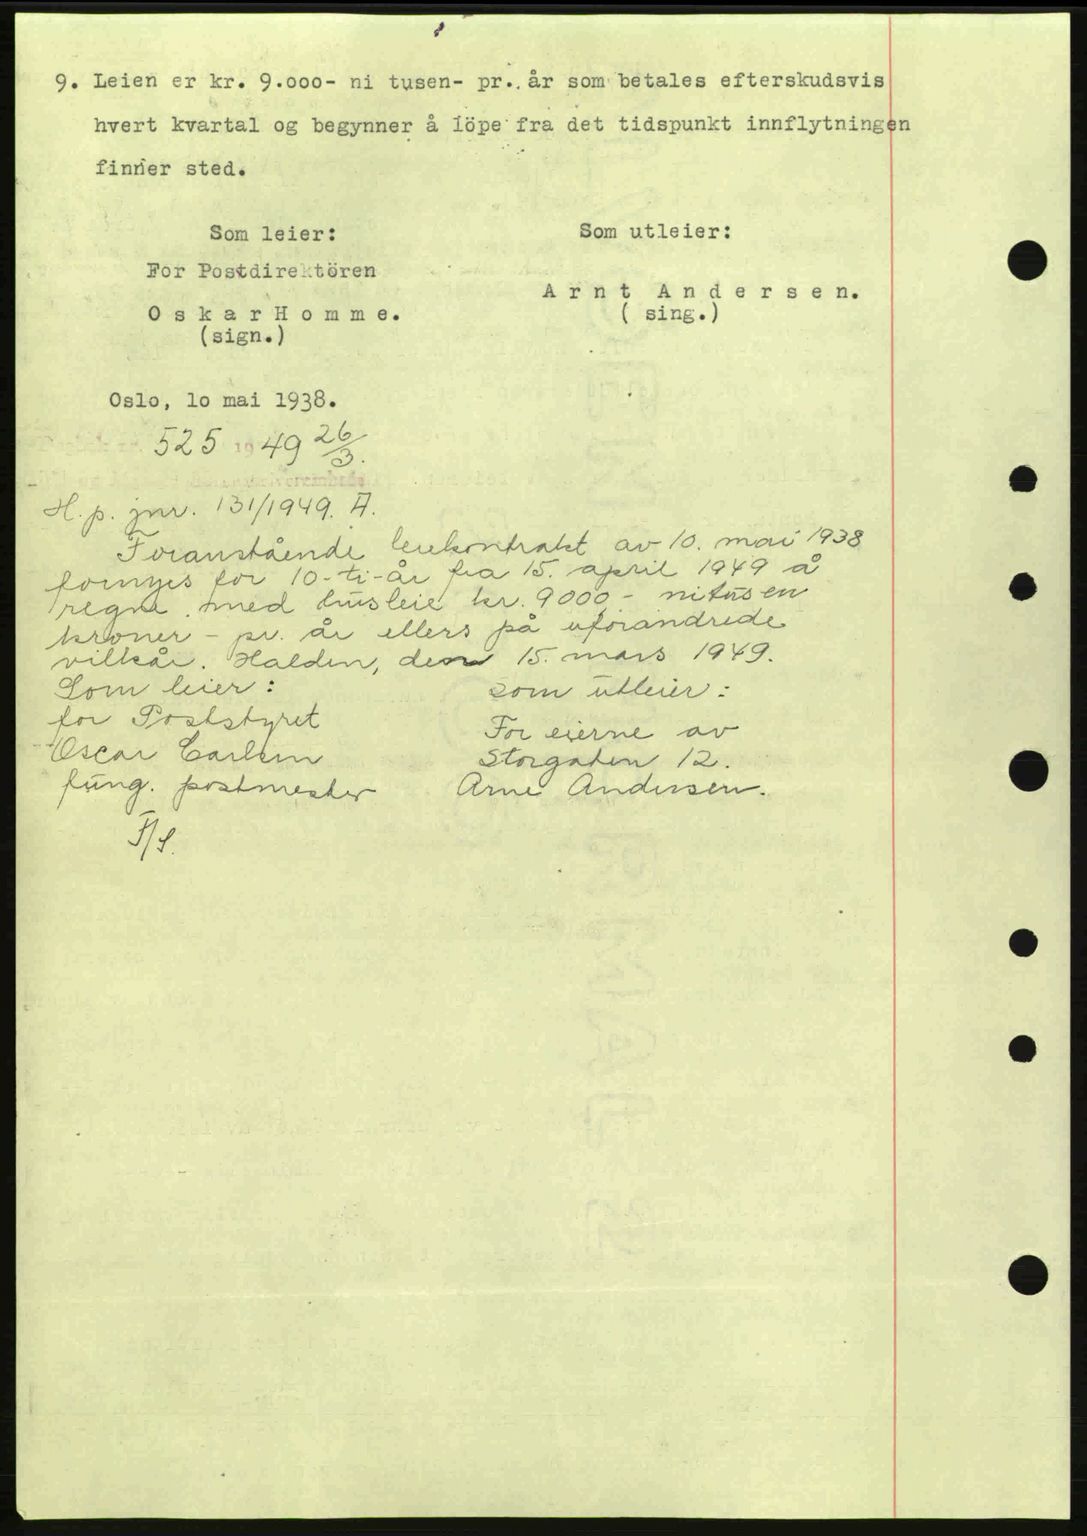 9. Leien er kr. 9.ooo- ni tusen- pr. år som betales efterskudsvis
hvert kvartal og begynner å löpe fra det tidspunkt innflytningen
finner sted.
Som leier:
For Postdirektören
O s k a r H o m m e.
(sign.)
Som utleier:
A r n t A n d e r s e n.
( sing.)
Oslo, 1o mai 1938.
525 19 49 26/3.
H. p. jnr. 131/1949. A.
Foranstående leiekontrakt av 10. mai 1938
fornyes for 10-ti-år fra 15. april 1949 å
regne med husleie kr. 9000,- nitusen
kroner - pr. år ellers på uforandrede
vilkår. Halden, den 15. mars 1949.
Som leier:
for Poststyret
Oscar Carlsen
fung. postmester
som utleier:
For eierne av
Storgaten 12.
Arne Andersen.